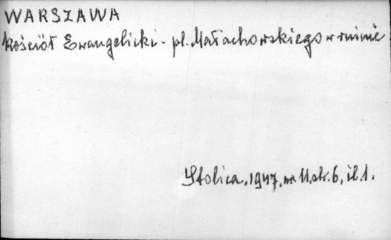 WARSZAWA
Kościół Ewangelicki - pl. Małachowskiego w ruinie
Stolica, 1947, nr 11, str. 6, il. 1.